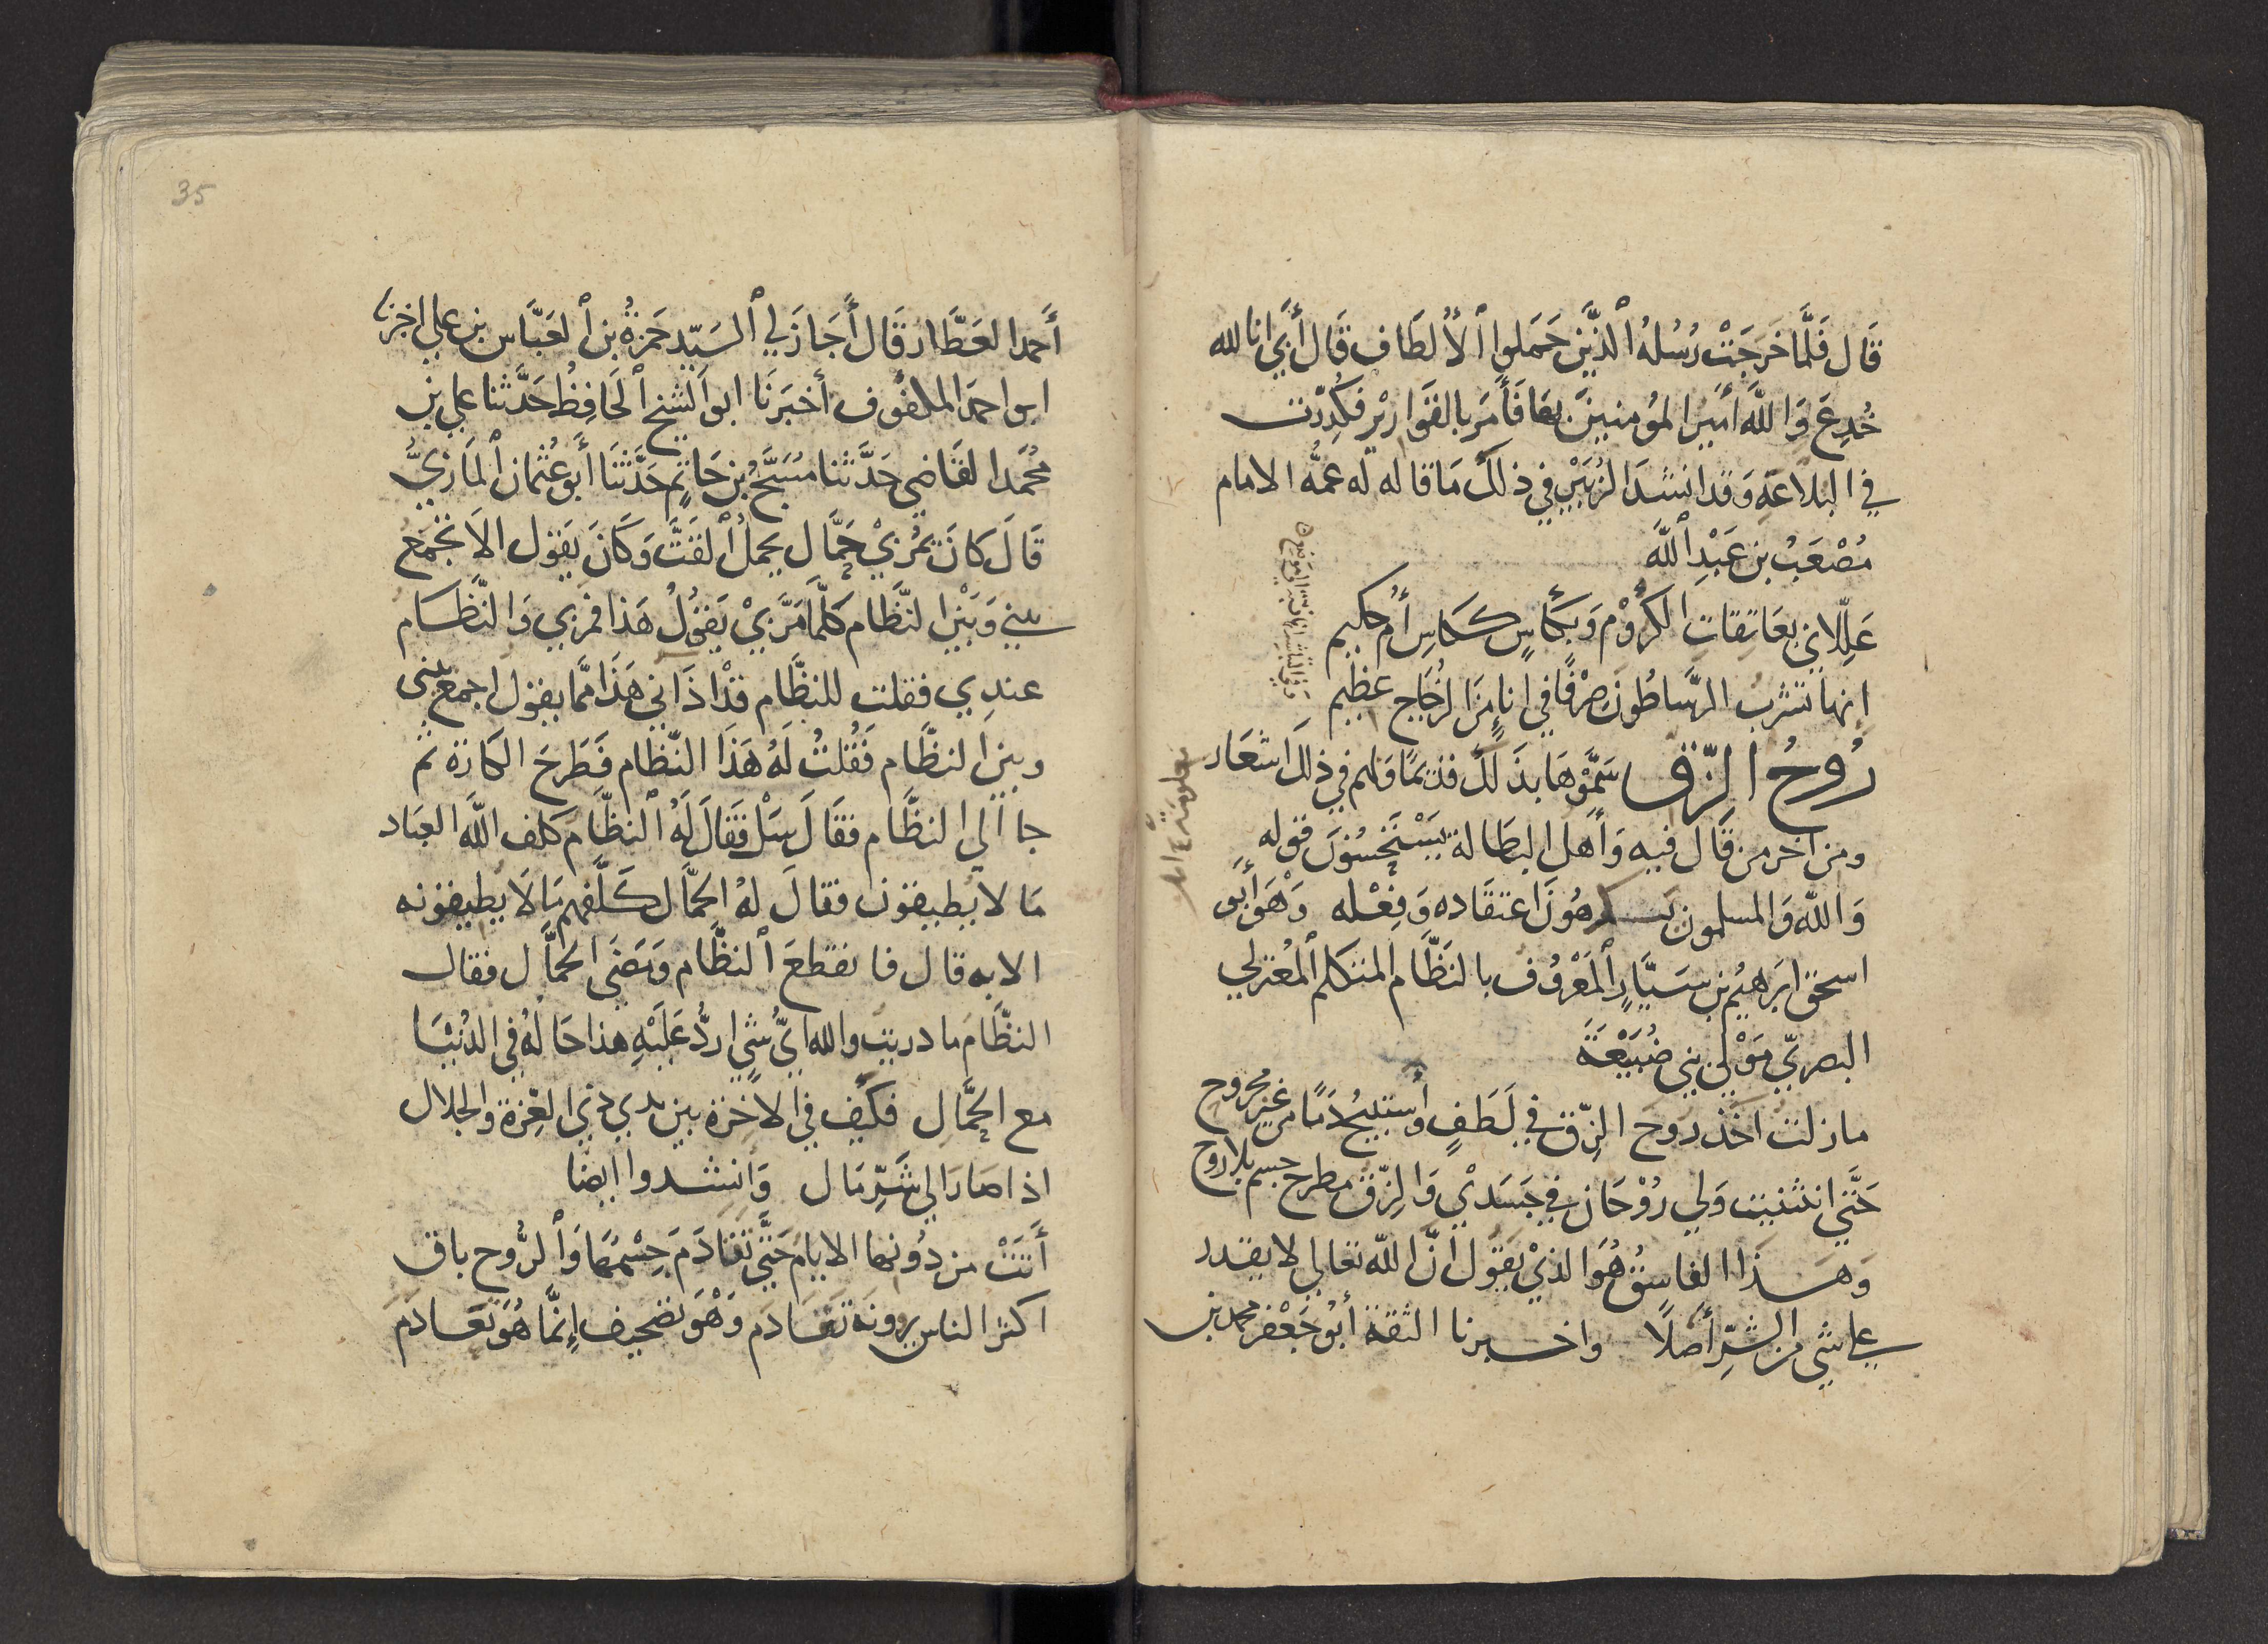 قَال فَلَمَّا خَرَجَتْ رُسُلهُ ٱلذَّيْنِ حَمَلوا ٱلأُلطَاف قَال أَبَي انا لله
خُدِعَ وَاللهَ أَمَيرا لمؤمنيينَ بهَا فَأَمَر بالقوَاريْر فكُسِّرت
في البلاعَةِ وَقدا نشدَ الزُبَيْرُ في ذلكَ مَا قاله له عمُّه الامام
مُصْعَبُ بن عَبْدِ ٱللهَ
عَلِّلاني بعَاتِقاتِ الكرُوْم وَبكَأسٍ ككَاسِ أُم حكيم
انها تشربُ الرسَّاطُونَ صِرْفًا في إناءٍ منَ الزُجَاج عَظيم
رُوحُ الزِّق سَمَّوْهَا بذَلكَ قديمًا وَلهم في ذلكَ اشعَار
ومن اخر من قَال فيه وَأهَل البطَالة يَسْتحسُنونَ قوله
وَالله وَالمسلمون يكرهُونَ اعتقَاده وَفِعْله وَهْوَ أبَو
اسحق ابرَهيُم بن سَيَّارٍ ٱلمَعْرُوُف بالنَظَّام المتكلم ٱلمعُتزلي
البصريّ مَوْلَى بني ضُبَيْعَةَ
ما زلت اخُذ رَوحَ الزِّق في لَطَفٍ وأَستبيُح دَمًا من غير مجروح
حَتَّي انثنيت وَلي رُوْحَان في جَسَدْي وَالزِّق مطرح جسم بلا روح
وَهَذا الفاسِقُ هُوَ الذيْ يَقوُل انَّ الله تعالي لا يقدر
علي شي من الشرِّ أصَلاً واخبرنا الثقة أَبوُ جَعْفر محمد بن
أحَمدا لعَطَّار قَال أَجَازَ لي ٱلسَيّد حَمزةُ بن ٱلعَبَّاس بن علي اخبرنا
ابو احمدَ الملفوف أخبَرنَا ابو ٱلشيخ ٱلحَافِظُ حَدَّثنا علي بن
محُمَّدا لقَاضي حَدَّثنا مُسَبَّحُ بن حَاتم حَدَّثنَا أَبو عُثمَان ٱلمَازنيُّ
قَالَ كانَ يمُر بيْ حَمَّال يحملُ ٱلقَتَّ وَكَانَ يَقوُل الاَ تجْمعُ
بيني وَبَيْن النَّظَّام كلمَّا مَرَّ بيْ يَقوُلُ هَذا فمرَ بي وَالنَّظَّام
عندِي فقلت للنظَّام قدْ اذَاني هَذَا ممَّا يقول اجمع بيني
وبين النظَّام فَقُلتُ لهُ هَذَا النَّظَّام فَطَرحَ الكارَة ثم
جا الي النظَّام فقَالَ سَل فَقَالَ لَهُ ٱلنظَّام كلف الله العبَاد
مَا لا يطيقون فقالَ لهُ الحمَّال كَلَّفهم مَا لاَ يطيقونه
الا به قال فانقطعَ ٱلنظَّام وَمَضَى الحمَّال فقال
النظَّام ما دريت والله ايُّ شيٍ اردُّ عَليْهِ هذا حَالهُ في الدُنيَا
مع الحمَّال فكَيف في الاخرَة بين يدي ذي العِزة والجلال
اذا صَار الي شَرِّ مَال وَانشدوا ايضا
أَتَتْ من دُونها الايامُ حَتَّي تَفَادَمَ جِسْمُهَا وَٱلرُّوح باق
اكثر الناس يرونه تَقَادَم وَهْوَ تصَحيف إنمَّا هُوَ تَفَادَم